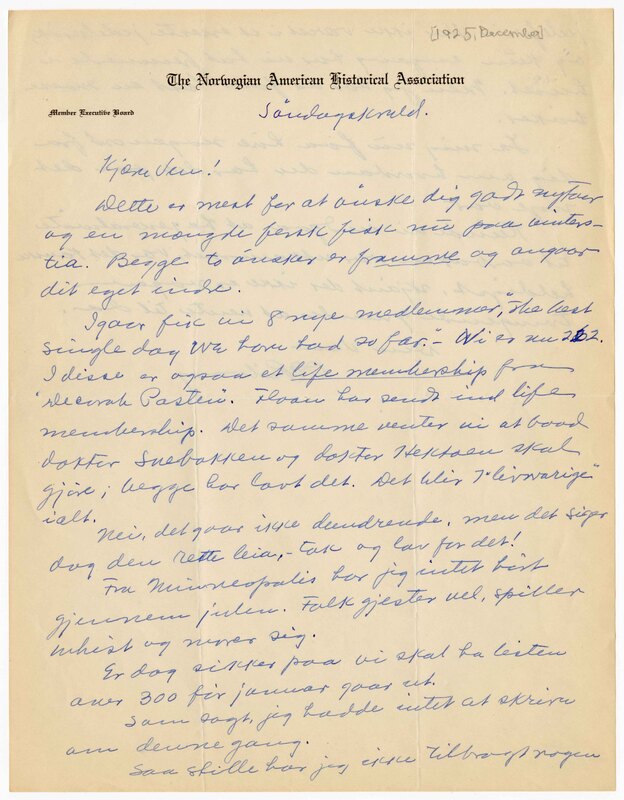 [1925, December]
The Norwegian American Historical Association
Member Executive Board
Söndagskveld.
Kjære Ven!
Dette er mest for at önske dig godt nytaar
og en mængde fersk fisk nu paa vinters-
tia. Begge to önsker er framme og angaar
dit eget indre.
Igaar fik vi 8 nye medlemmer, "the best
single day we have had so far." - Vi er nu 262.
I disse er ogsaa et life membership fra
"Decorah Posten". Haan har sendt ind life
membership. Det samme venter vi at baad
doktor Snebakken og doktor Hektoen skal
gjöre; begge har lovt det. Det blir 7 "livsvarige"
ialt.
Nei, det gaar ikke dundrende, men det siger
dog den rette leia, - tak og lov for det!
Fra Minneapolis har jeg intet hört
gjennem julen. Folk gjester vel, spiller
whist og morer sig.
Er dog sikker paa vi skal ha listen
over 300 för januar gaar ut.
Som sagt, jeg hadde intet at skrive
om denne gang.
Saa stille har jeg ikke tilbragt nogen